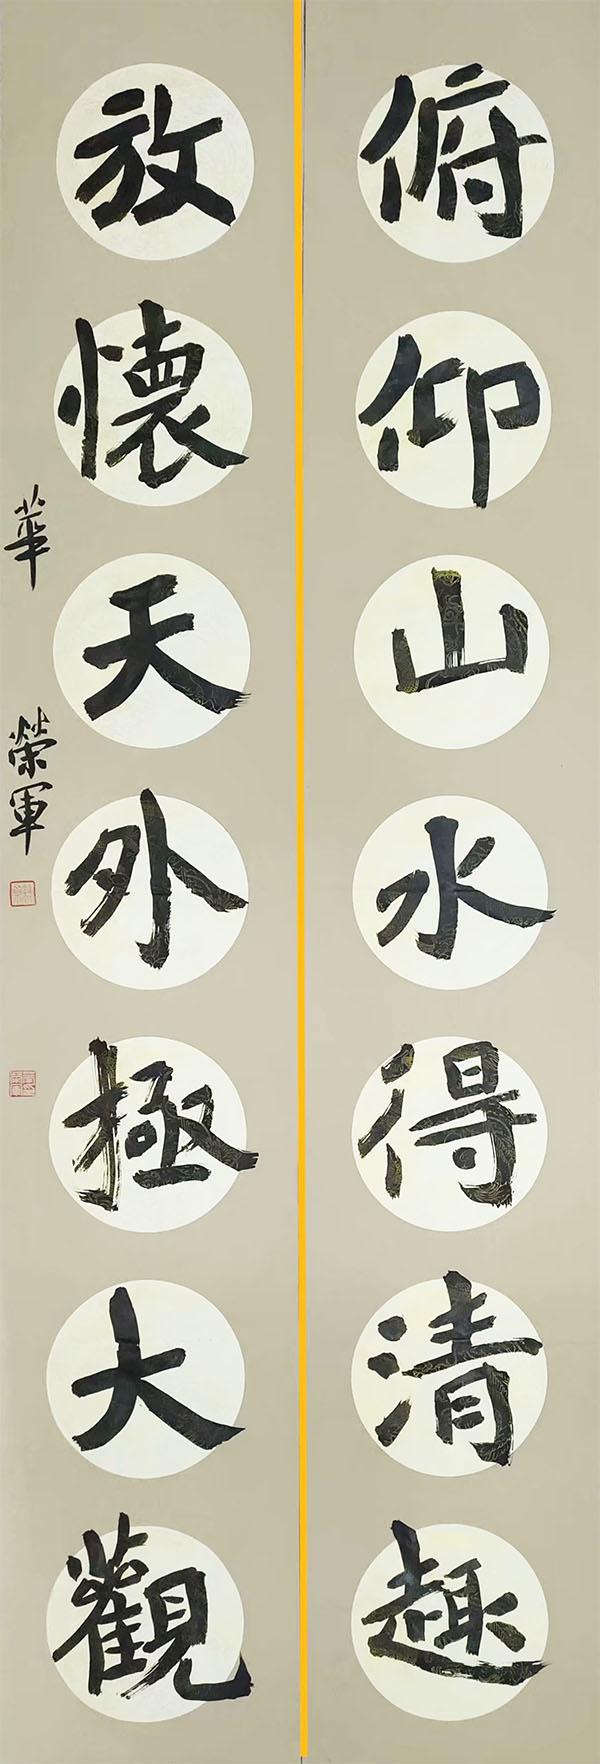 俯仰山水得清趣
放懷天外極大觀
華
榮軍